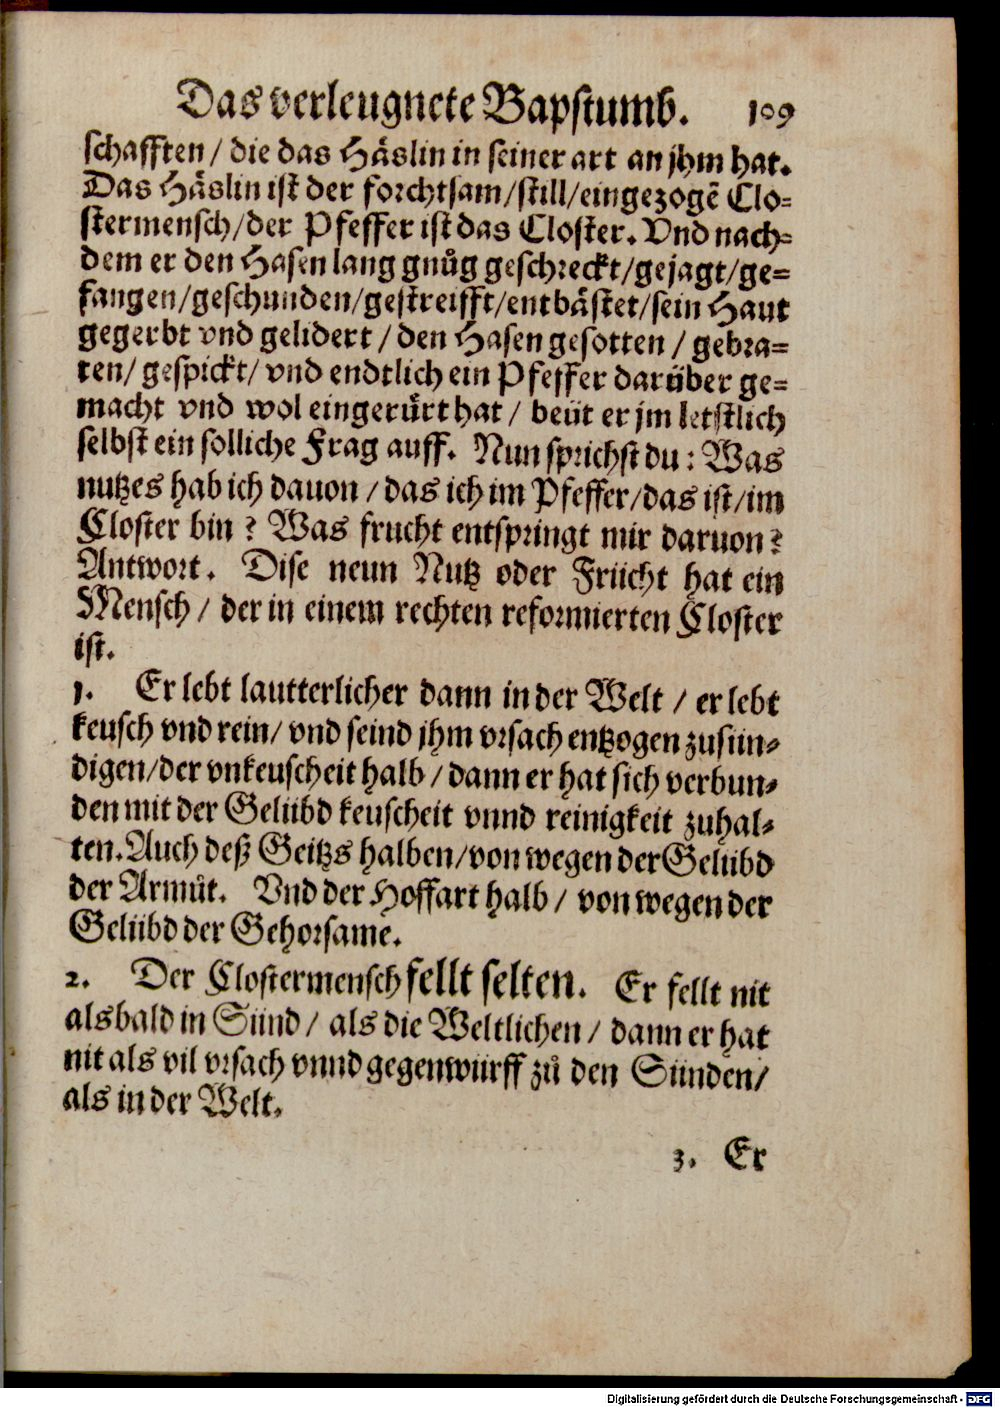 Das verleugnete Bapstumb. 109
schafften / die das Häslin in seiner art an jhm hat.
Das Häslin ist der forchtsam/still/eingezogẽ Clo-
stermensch/der Pfeffer ist das Closter. Vnd nach-
dem er den Hasen lang gnůg geschreckt/gejagt/ge-
fangen/geschunden/gestreifft/entbästet/sein Haut
gegerbt vnd gelidert / den Hasen gesotten / gebra-
ten/ gespickt/ vnd endtlich ein Pfeffer darüber ge-
macht vnd wol eingerürt hat / beüt er jm letstlich
selbst ein solliche Frag auff. Nun sprichst du: Was
nutzes hab ich dauon / das ich im Pfeffer/das ist/im
Closter bin? Was frucht entspringt mir daruon?
Antwort. Dise neun Nutz oder Früicht hat ein
Mensch / der in einem rechten reformierten Closter
ist.
1. Er lebt lautterlicher dann in der Welt / er lebt
keusch vnd rein/ vnd seind jhm vrsach entzogen zusün-
digen/der vnkeuscheit halb / dann er hat sich verbun-
den mit der Gelübd keuscheit vnnd reinigkeit zuhal-
ten. Auch deß Geitzs halben/von wegen der Gelübd
der Armůt. Vnd der Hoffart halb / von wegen der
Gelübd der Gehorsame.
2. Der Clostermensch fellt selten. Er fellt nit
alsbald in Sünd / als die Weltlichen / dann er hat
nit als vil vrsach vnnd gegenwürff zů den Sünden/
als in der Welt.
3. Er
Digitalisierung gefördert durch die Deutsche Forschungsgemeinschaft - DFG